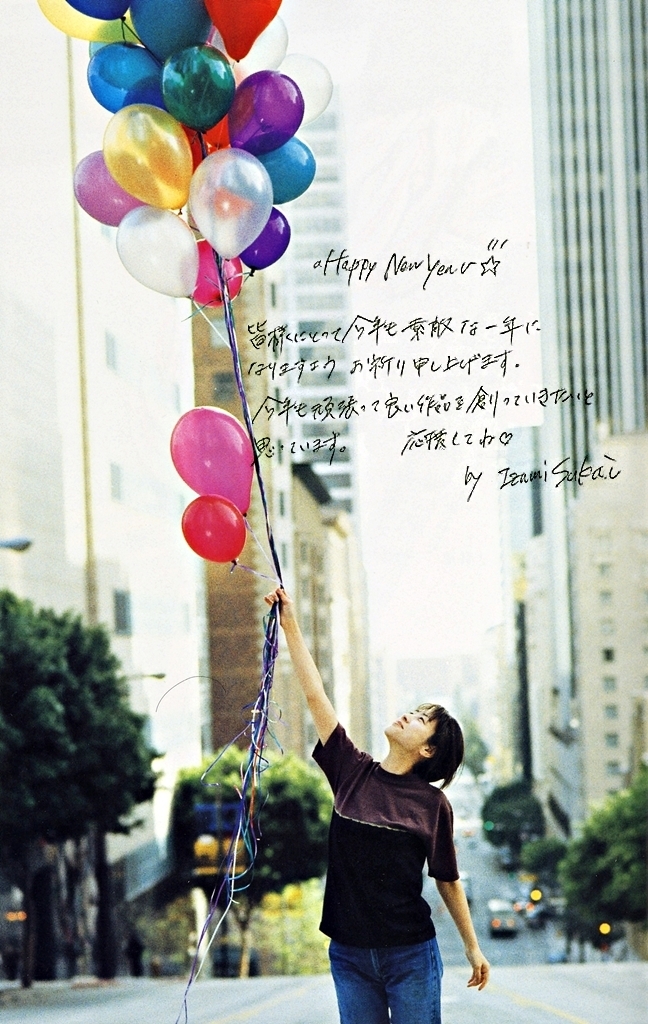 Happy New Year☆
皆様にとって今年も素敵な一年に
なりますよう お祈り申し上げます。
今年も頑張って良い作品を創っていきたいと
思っています。 応援してね♡
by Izumi Sakai